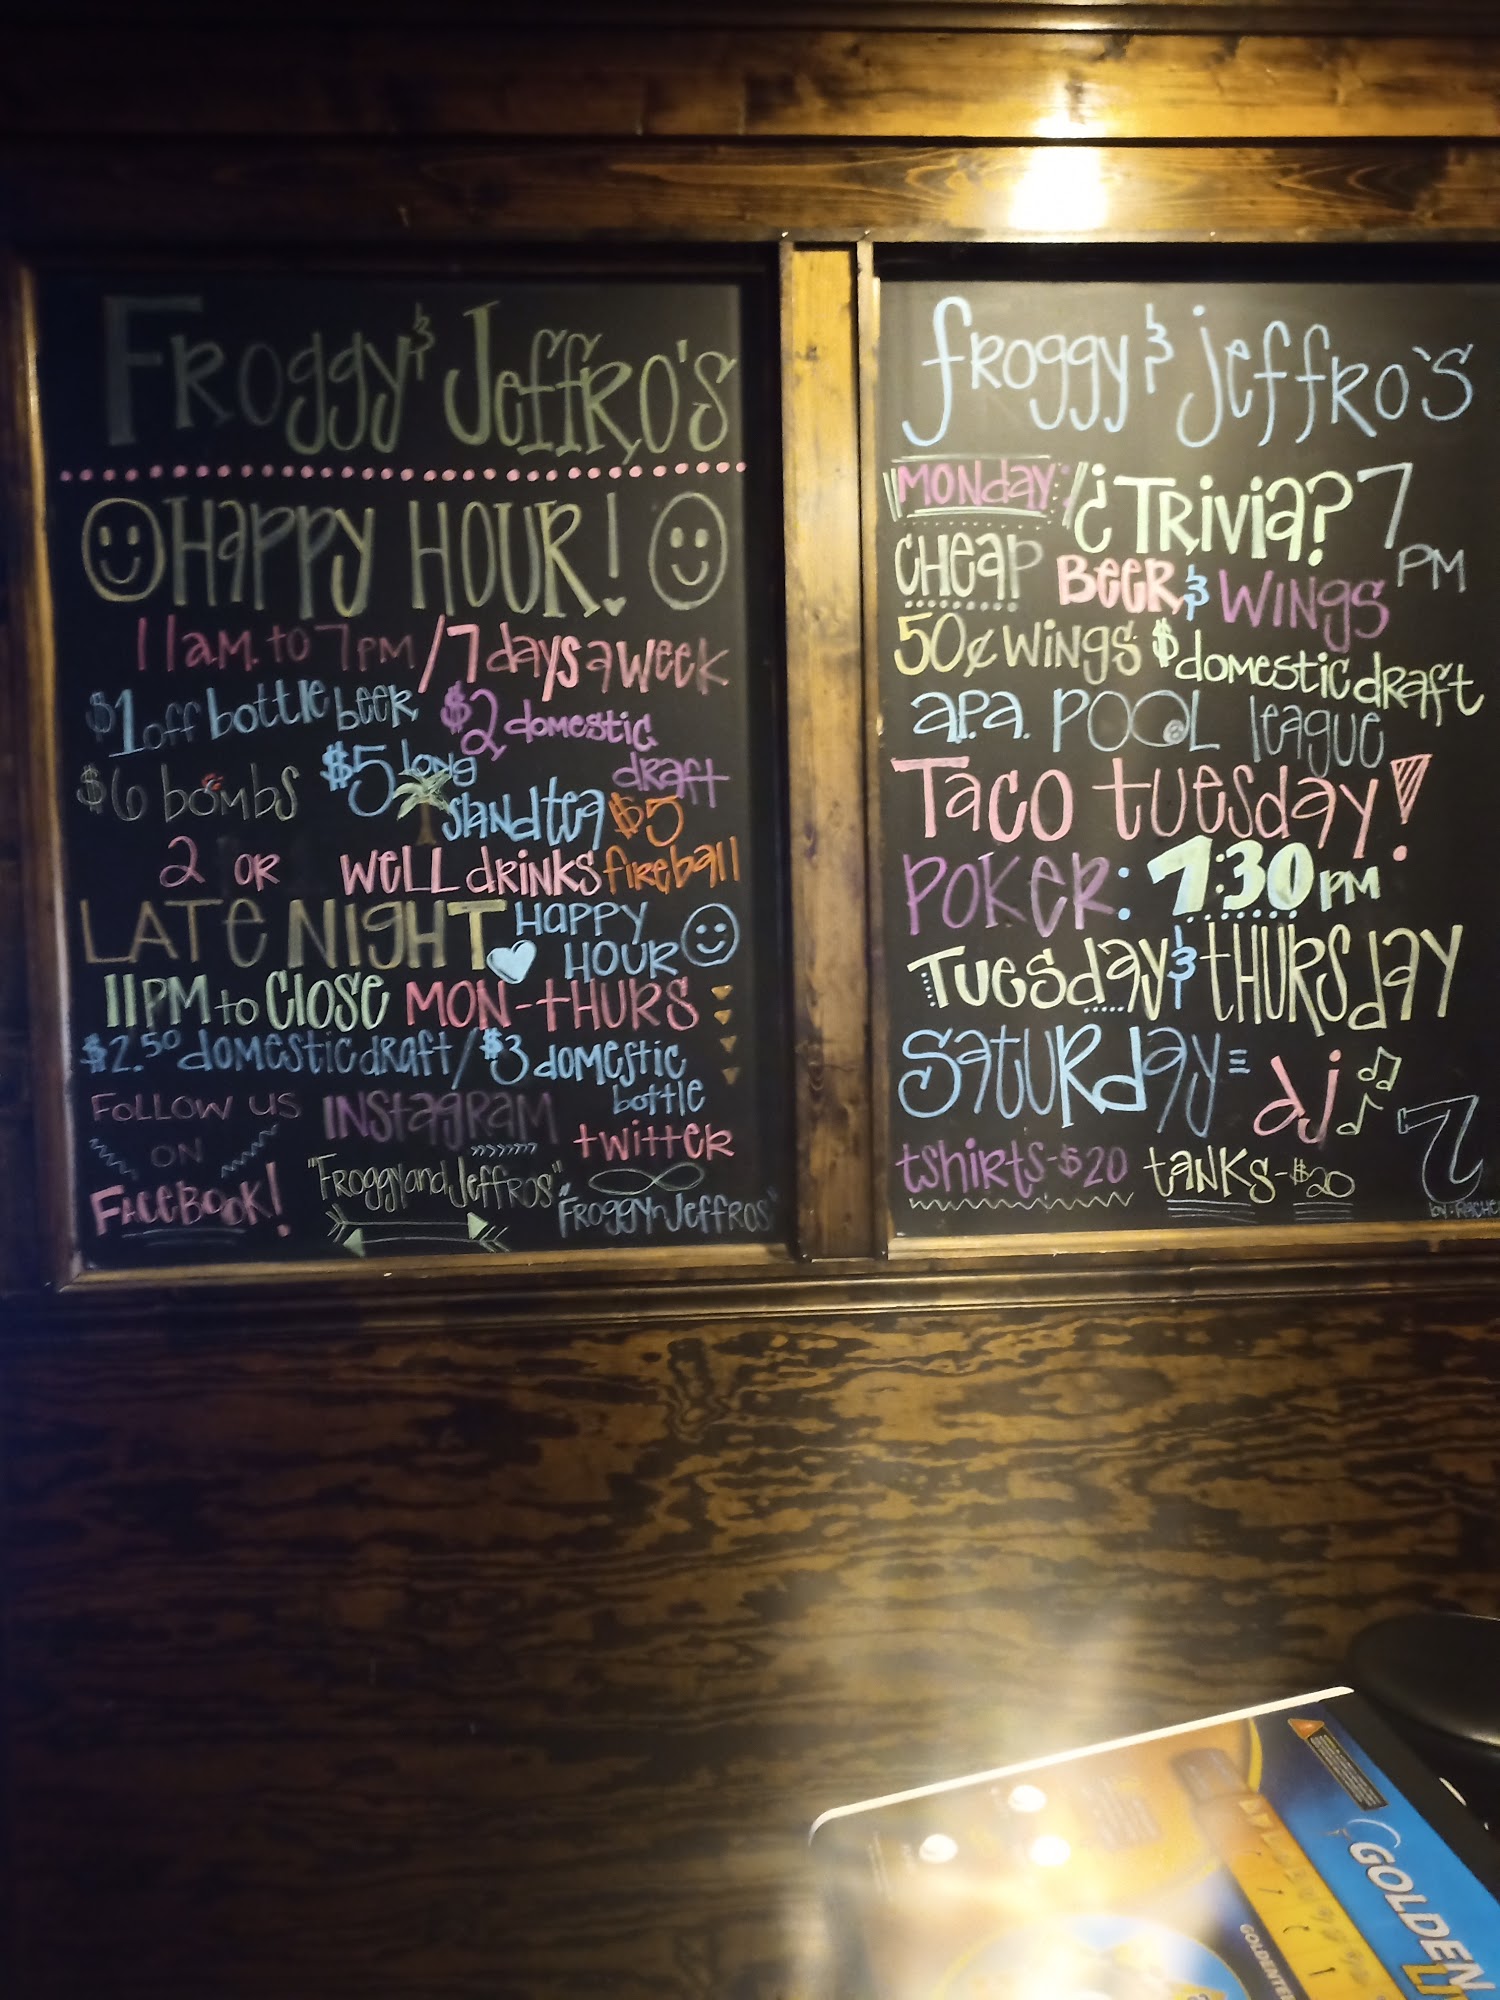 Froggy & Jeffro's
Happy Hour!
11 a.m. to 7 pm / 7 days a week
$1 off bottle beer $2 domestic draft
$6 bombs $5 long island tea $5 fireball
2 or well drinks
Late Night Happy Hour
11pm to Close Mon-Thurs
$2.50 domestic draft / $3 domestic bottle
Follow us on Facebook!
Instagram "FroggyandJeffros"
twitter "FroggynJeffros"
Froggy & Jeffro's
Monday: ¿Trivia? 7 PM
Cheap Beer & Wings
50¢ wings $ domestic draft
a.p.a. Pool league
Taco tuesday!
Poker: 7:30 PM
Tuesday & thursday
Saturday = dj
tshirts-$20 tanks-$20
GOLDEN